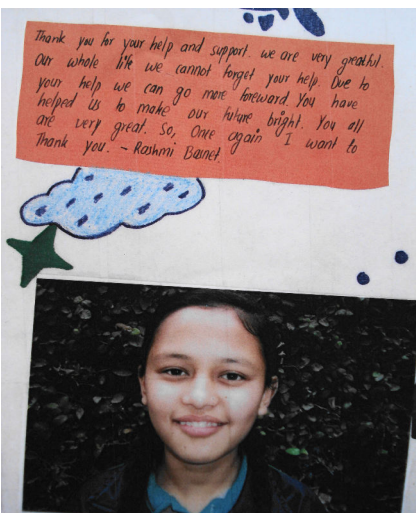 Thank you for your help and support. we are very greatful.
Our whole life we cannot forget your help. Due to
your help we can go more foreward. You have
helped us to make our future bright. You all
are very great. So, Once again I want to
Thank you. ~ Rashmi Basnet